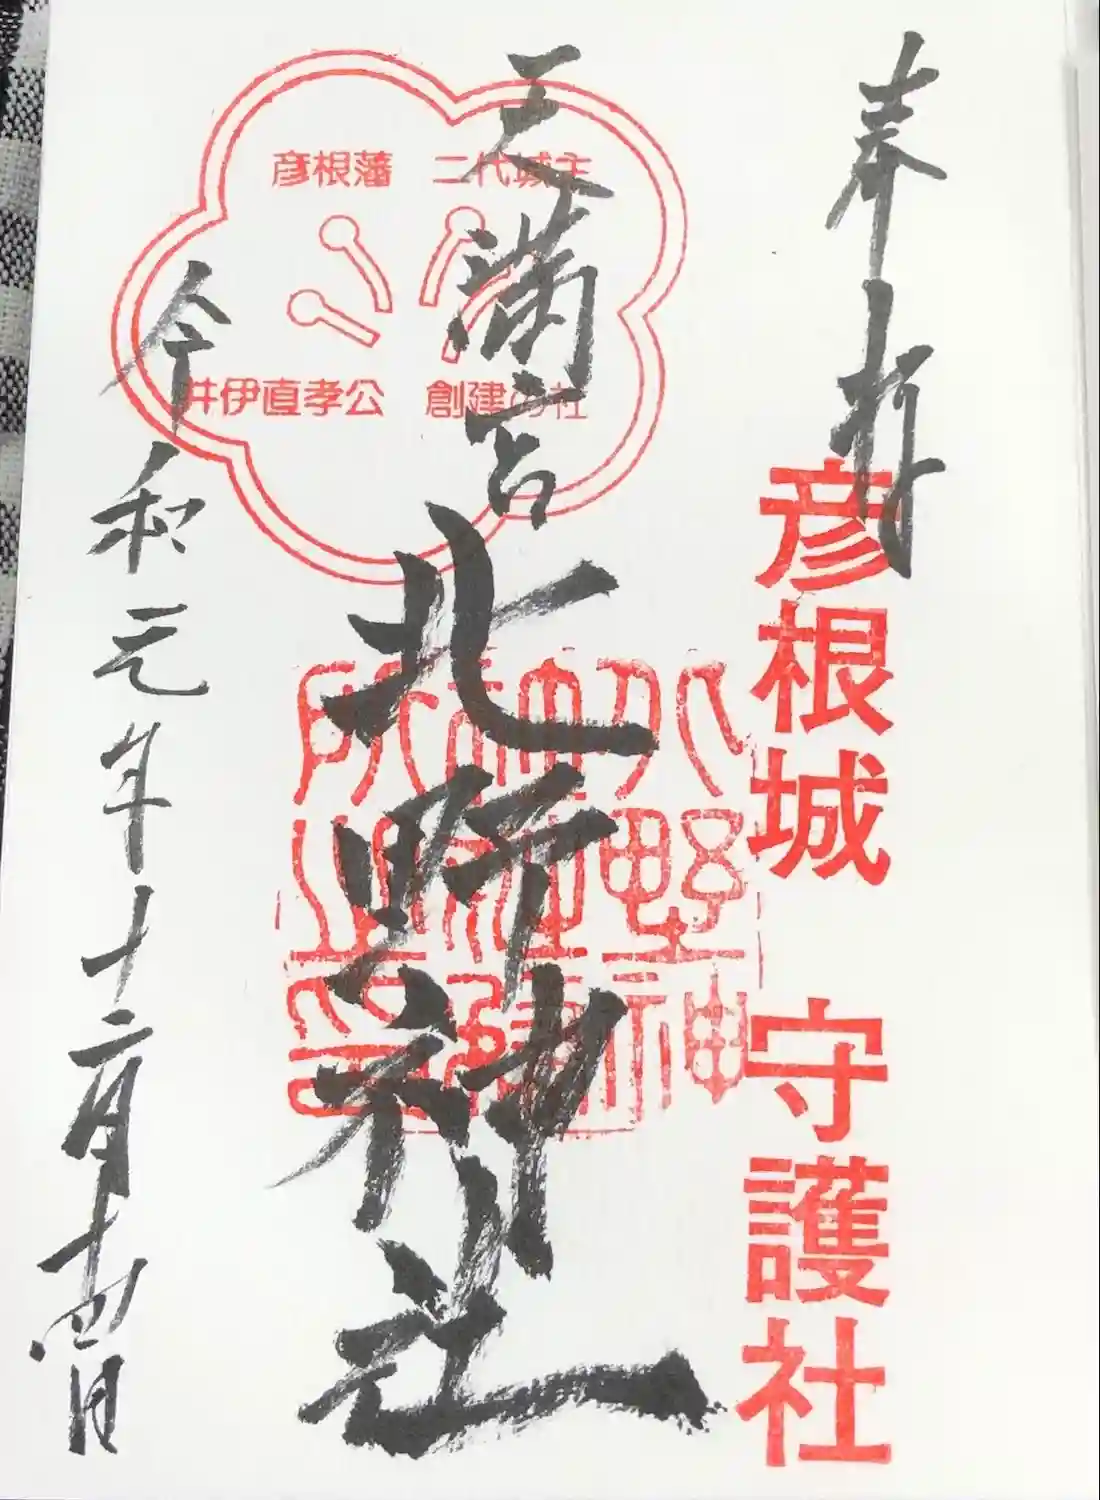 奉拝
彦根城 守護社
天満宮
北野神社
彦根藩 二代城主
井伊直孝公 創建の社
令和元年十二月十四日